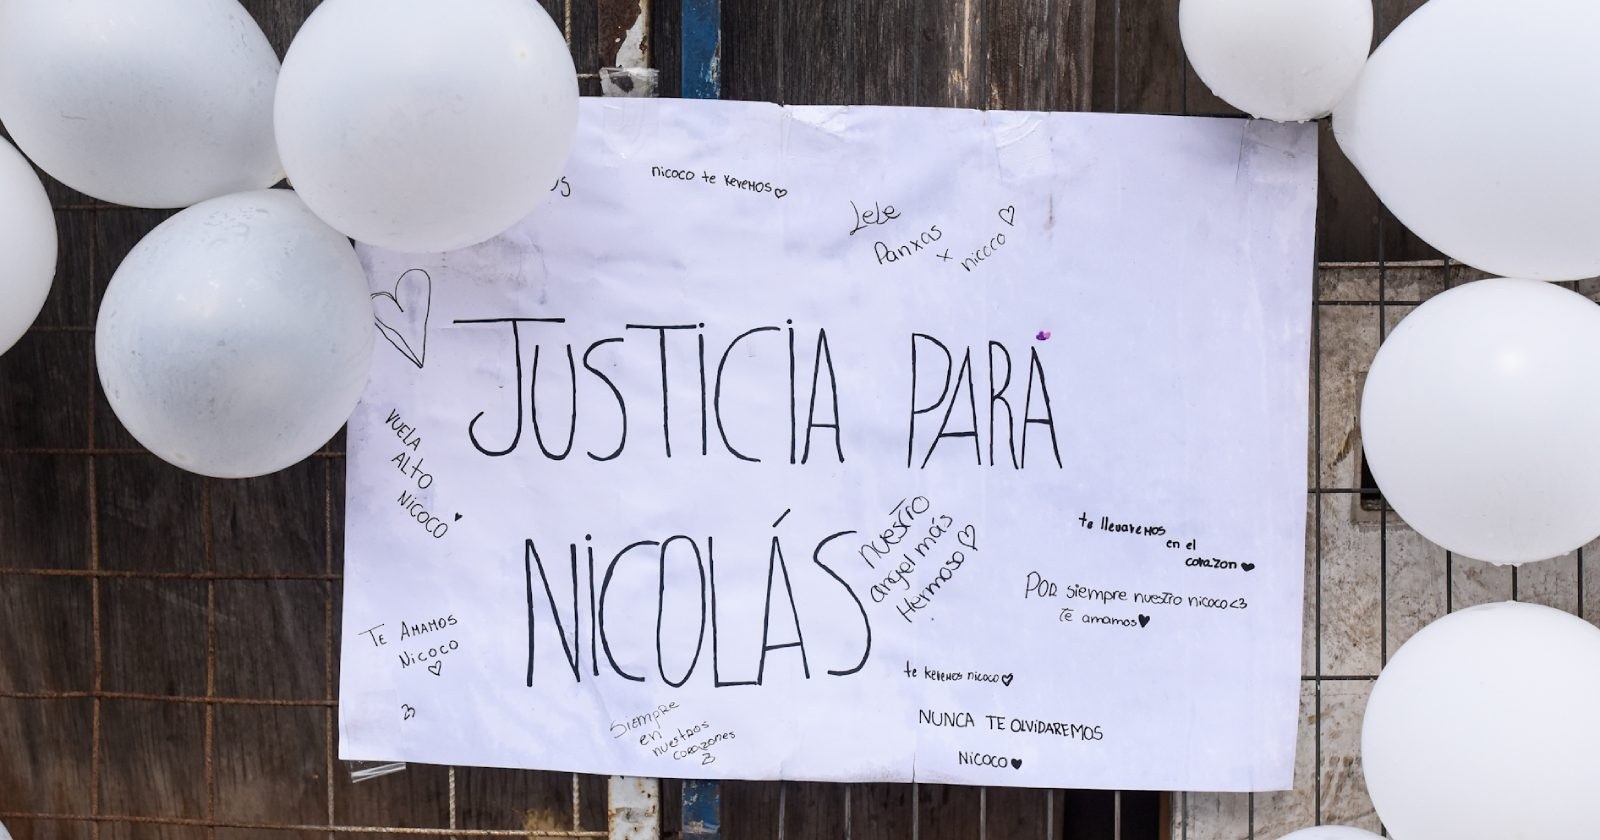 nicoco te keremos
Lele
Panxas
x nicoco
JUSTICIA PARA
NICOLÁS
VUELA
ALTO
NICOCO
nuestro
angel más
Hermoso
te llevaremos
en el
corazon
POR siempre nuestro nicoco<3
te amamos
TE AMAMOS
NICOCO
te keremos nicoco
Siempre
en
nuestros
corazones
NUNCA TE OLVIDAREMOS
NICOCO